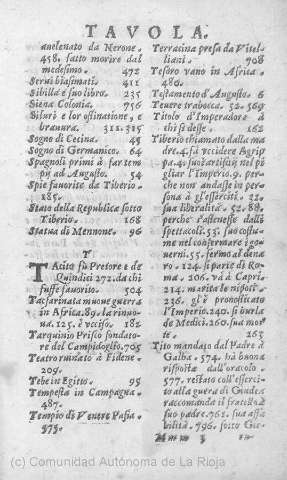 TAVOLA.
auelenato da Nerone.
458. fatto morire dal
medesimo. 472
Serui biasimati. 211
Sibilla e suo libro. 235
Siena Colonia. 756
Siluri e lor ostinatione, e
brauura. 312.315
Sogno di Cecina. 45
Sogno di Germanico. 64
Spagnoli primi à far tem
pij ad Augusto. 54
Spie fauorite da Tiberio
185.
Stato della Republica sotto
Tiberio. 168
Statua di Mennone. 96
T
TAcito fù Pretore e de
Quindici 272. da chi
fusse fauorito. 504
Tacfarinata muoue guerra
in Africa. 89. la rinuo-
ua. 125. è vcciso. 182
Tarquinio Prisco fondato
re del Campidoglio. 705
Teatro ruinato à Fidene
209.
Tebe in Egitto. 95
Tempesta in Campagna
487.
Tempio di Venere Pafia
575.
Terracina presa da Vitel-
liani. 908
Tesoro vano in Africa.
480.
Testamento d'Augusto. 6
Teuere trabocca. 52. 569
Titolo d'Imperadore à
chi si desse. 162
Tiberio chiamato dalla ma
dre. 4. fà vccidere Agrip
pa. 4. suo artificio nel pi
gliar l'Imperio. 9. perche
non andasse in perso
na à gl'esserciti.
sua liberalità. 52. 88.
perche s'astenesse dalli
spettacoli. 53. suo costu
me nel confermare i go
uerni. 55. fermo al dena
ro. 124. si parte di Ro-
ma. 206. và à Capri.
214. marita le nipoti.
236. gl'è pronosticato
l'Imperio. 240. si burla
de Medici. 260. sua mor
te. 265
Tito mandato dal Padre à
Galba. 574. hà buona
risposta dall'oracolo.
577. restato coll'esserci
to alla guerra di Giudea
raccomanda il fratello à
suo padre. 761. sua affa
bilità. 796. sotto Gie-
Mmm 3
(c) Comunidad Autónoma de La Rioja